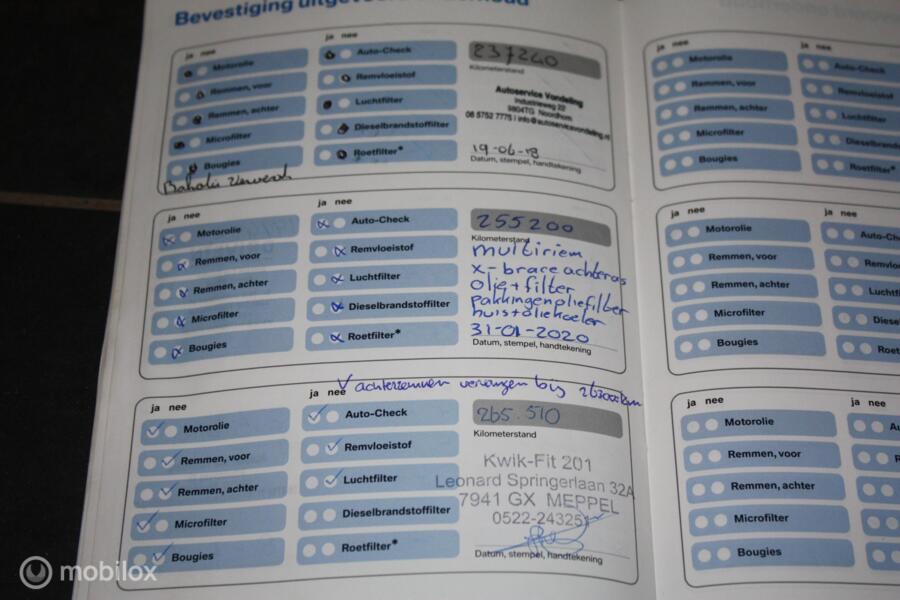 Bevestiging uitgevoerd onderhoud
ja nee
Motorolie
Remmen, voor
Remmen, achter
Microfilter
Bougies
ja nee
Auto-Check
Remvloeistof
Luchtfilter
Dieselbrandstoffilter
Roetfilter*
237240
Kilometerstand
Autoservice Vondeling
Industrieweg 22
9804TG Noordhorn
06 5752 7775 | info@autoservicevondeling.nl
19-06-18
Datum, stempel, handtekening
ja nee
Motorolie
Remmen, voor
Remmen, achter
Microfilter
Bougies
ja nee
Auto-Check
Remvloeistof
Luchtfilter
Dieselbrandstoffilter
Roetfilter*
255200
Kilometerstand
multiriem
x-brace achteras
olie + filter
pakkingen oliefilter
huis + oliekoeler
31-01-2020
Datum, stempel, handtekening
achterremmen vervangen bij 263000km
ja nee
Motorolie
Remmen, voor
Remmen, achter
Microfilter
Bougies
ja nee
Auto-Check
Remvloeistof
Luchtfilter
Dieselbrandstoffilter
Roetfilter*
265.510
Kilometerstand
Kwik-Fit 201
Leonard Springerlaan 32A
7941 GX MEPPEL
0522-243257
Datum, stempel, handtekening
ja nee
Motorolie
Remmen, voor
Remmen, achter
Microfilter
Bougies
ja nee
Auto-Check
Remvloeistof
Luchtfilter
Dieselbran
Roetfilter*
ja nee
Motorolie
Remmen, voor
Remmen, achter
Microfilter
Bougies
ja nee
Auto-Ch
Remvlo
Luchtf
Diese
Roet
ja nee
Motorolie
Remmen, voor
Remmen, achter
Microfilter
Bougies
ja nee
Au
Re
L
mobilox